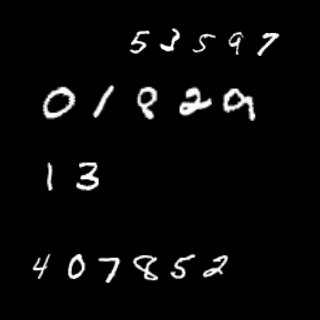 53597
01829
13
407852